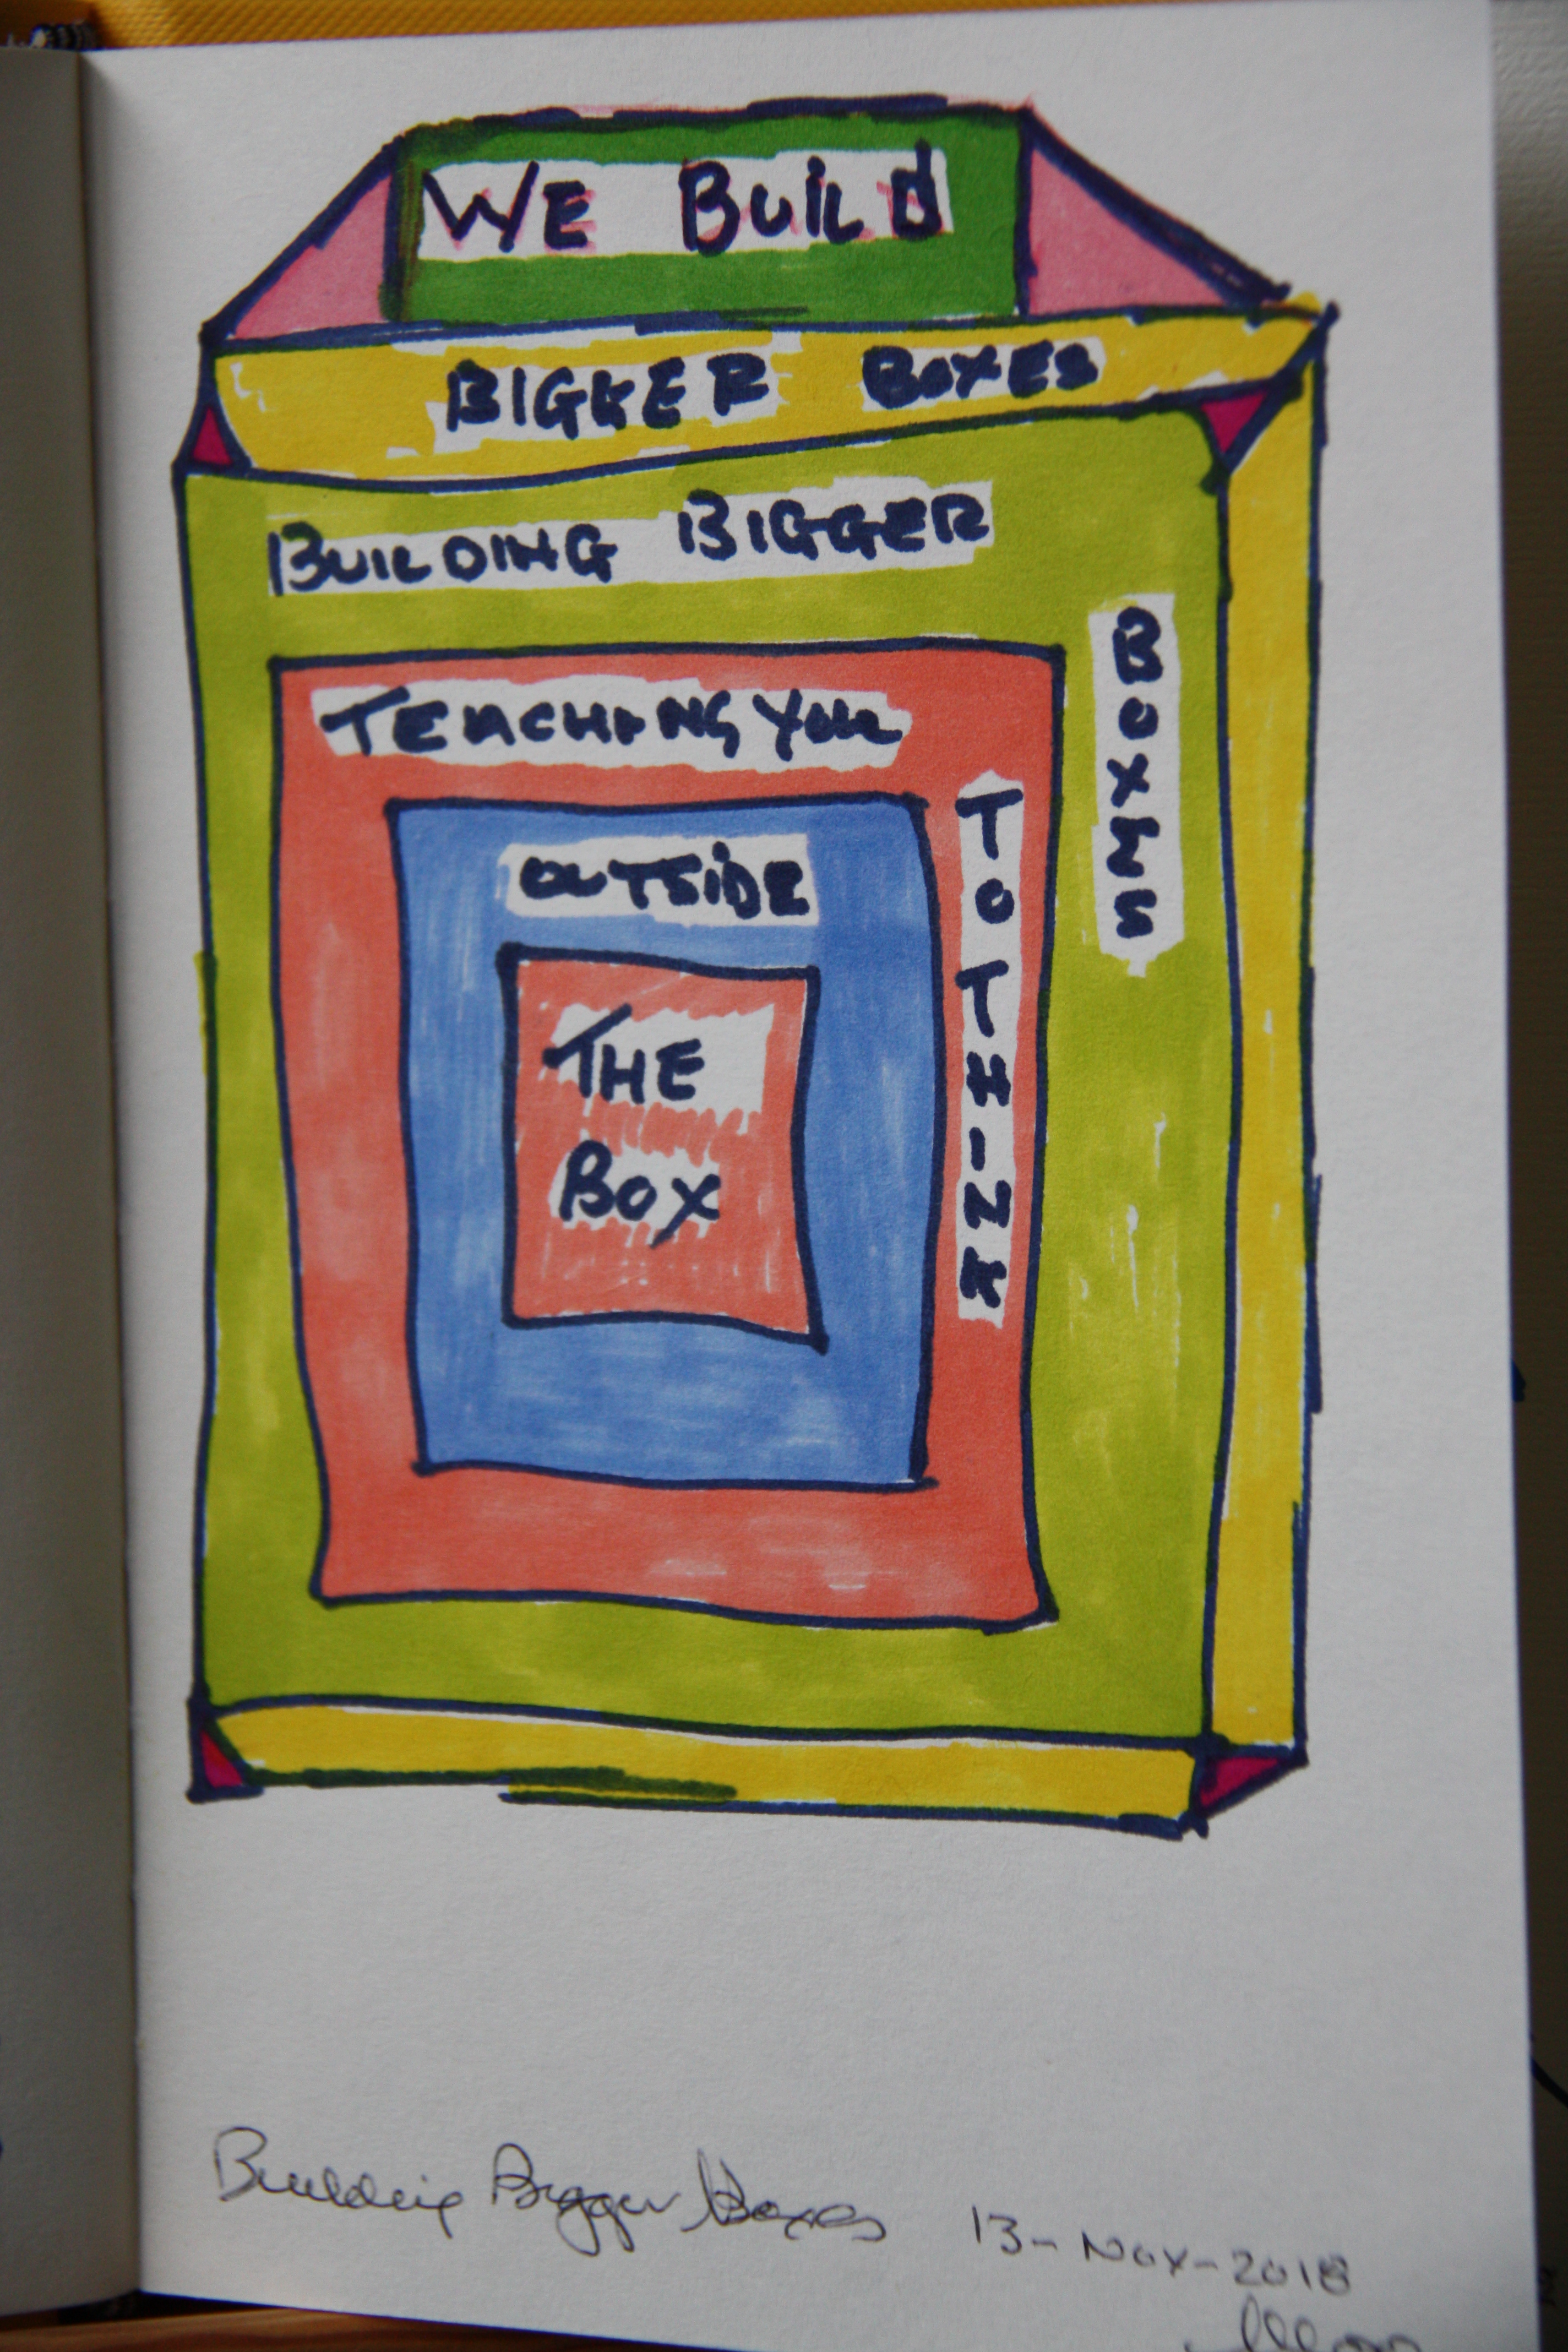 WE BUILD
BIGGER BOXES
BUILDING BIGGER
BOXES
TEACHING YOU
TO THINK
OUTSIDE
THE
BOX
Building Bigger Boxes 13-Nov-2018